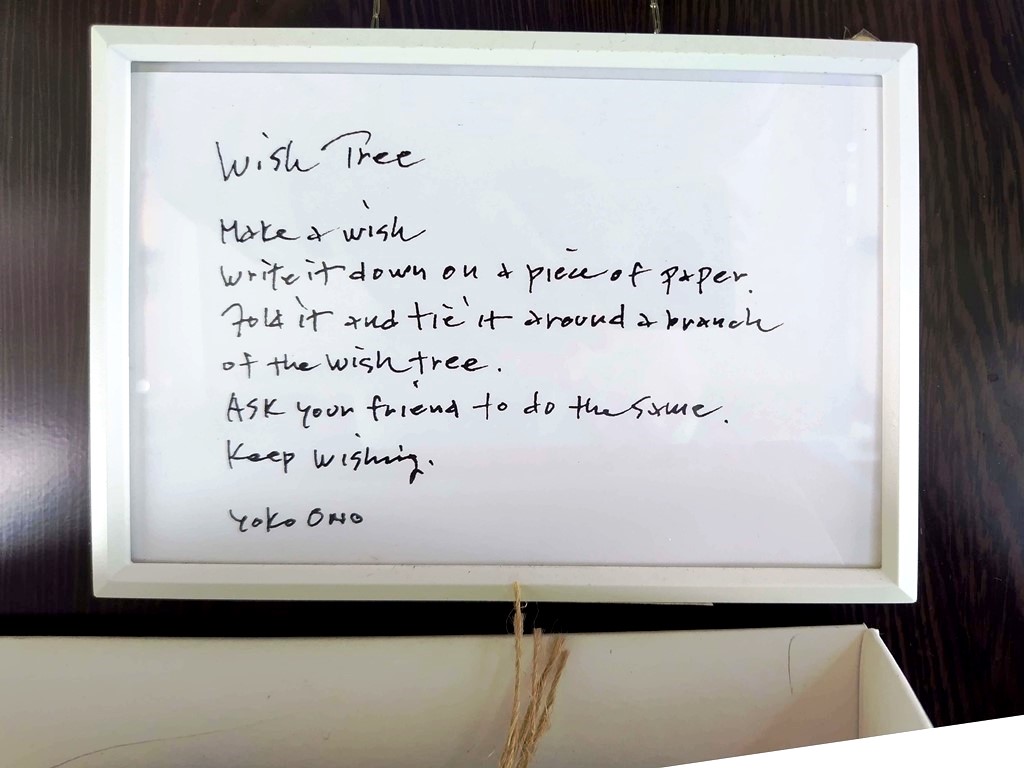 Wish Tree
Make a wish
Write it down on a piece of paper.
Fold it and tie it around a branch
of the wish tree.
Ask your friend to do the same.
Keep wishing.
Yoko Ono